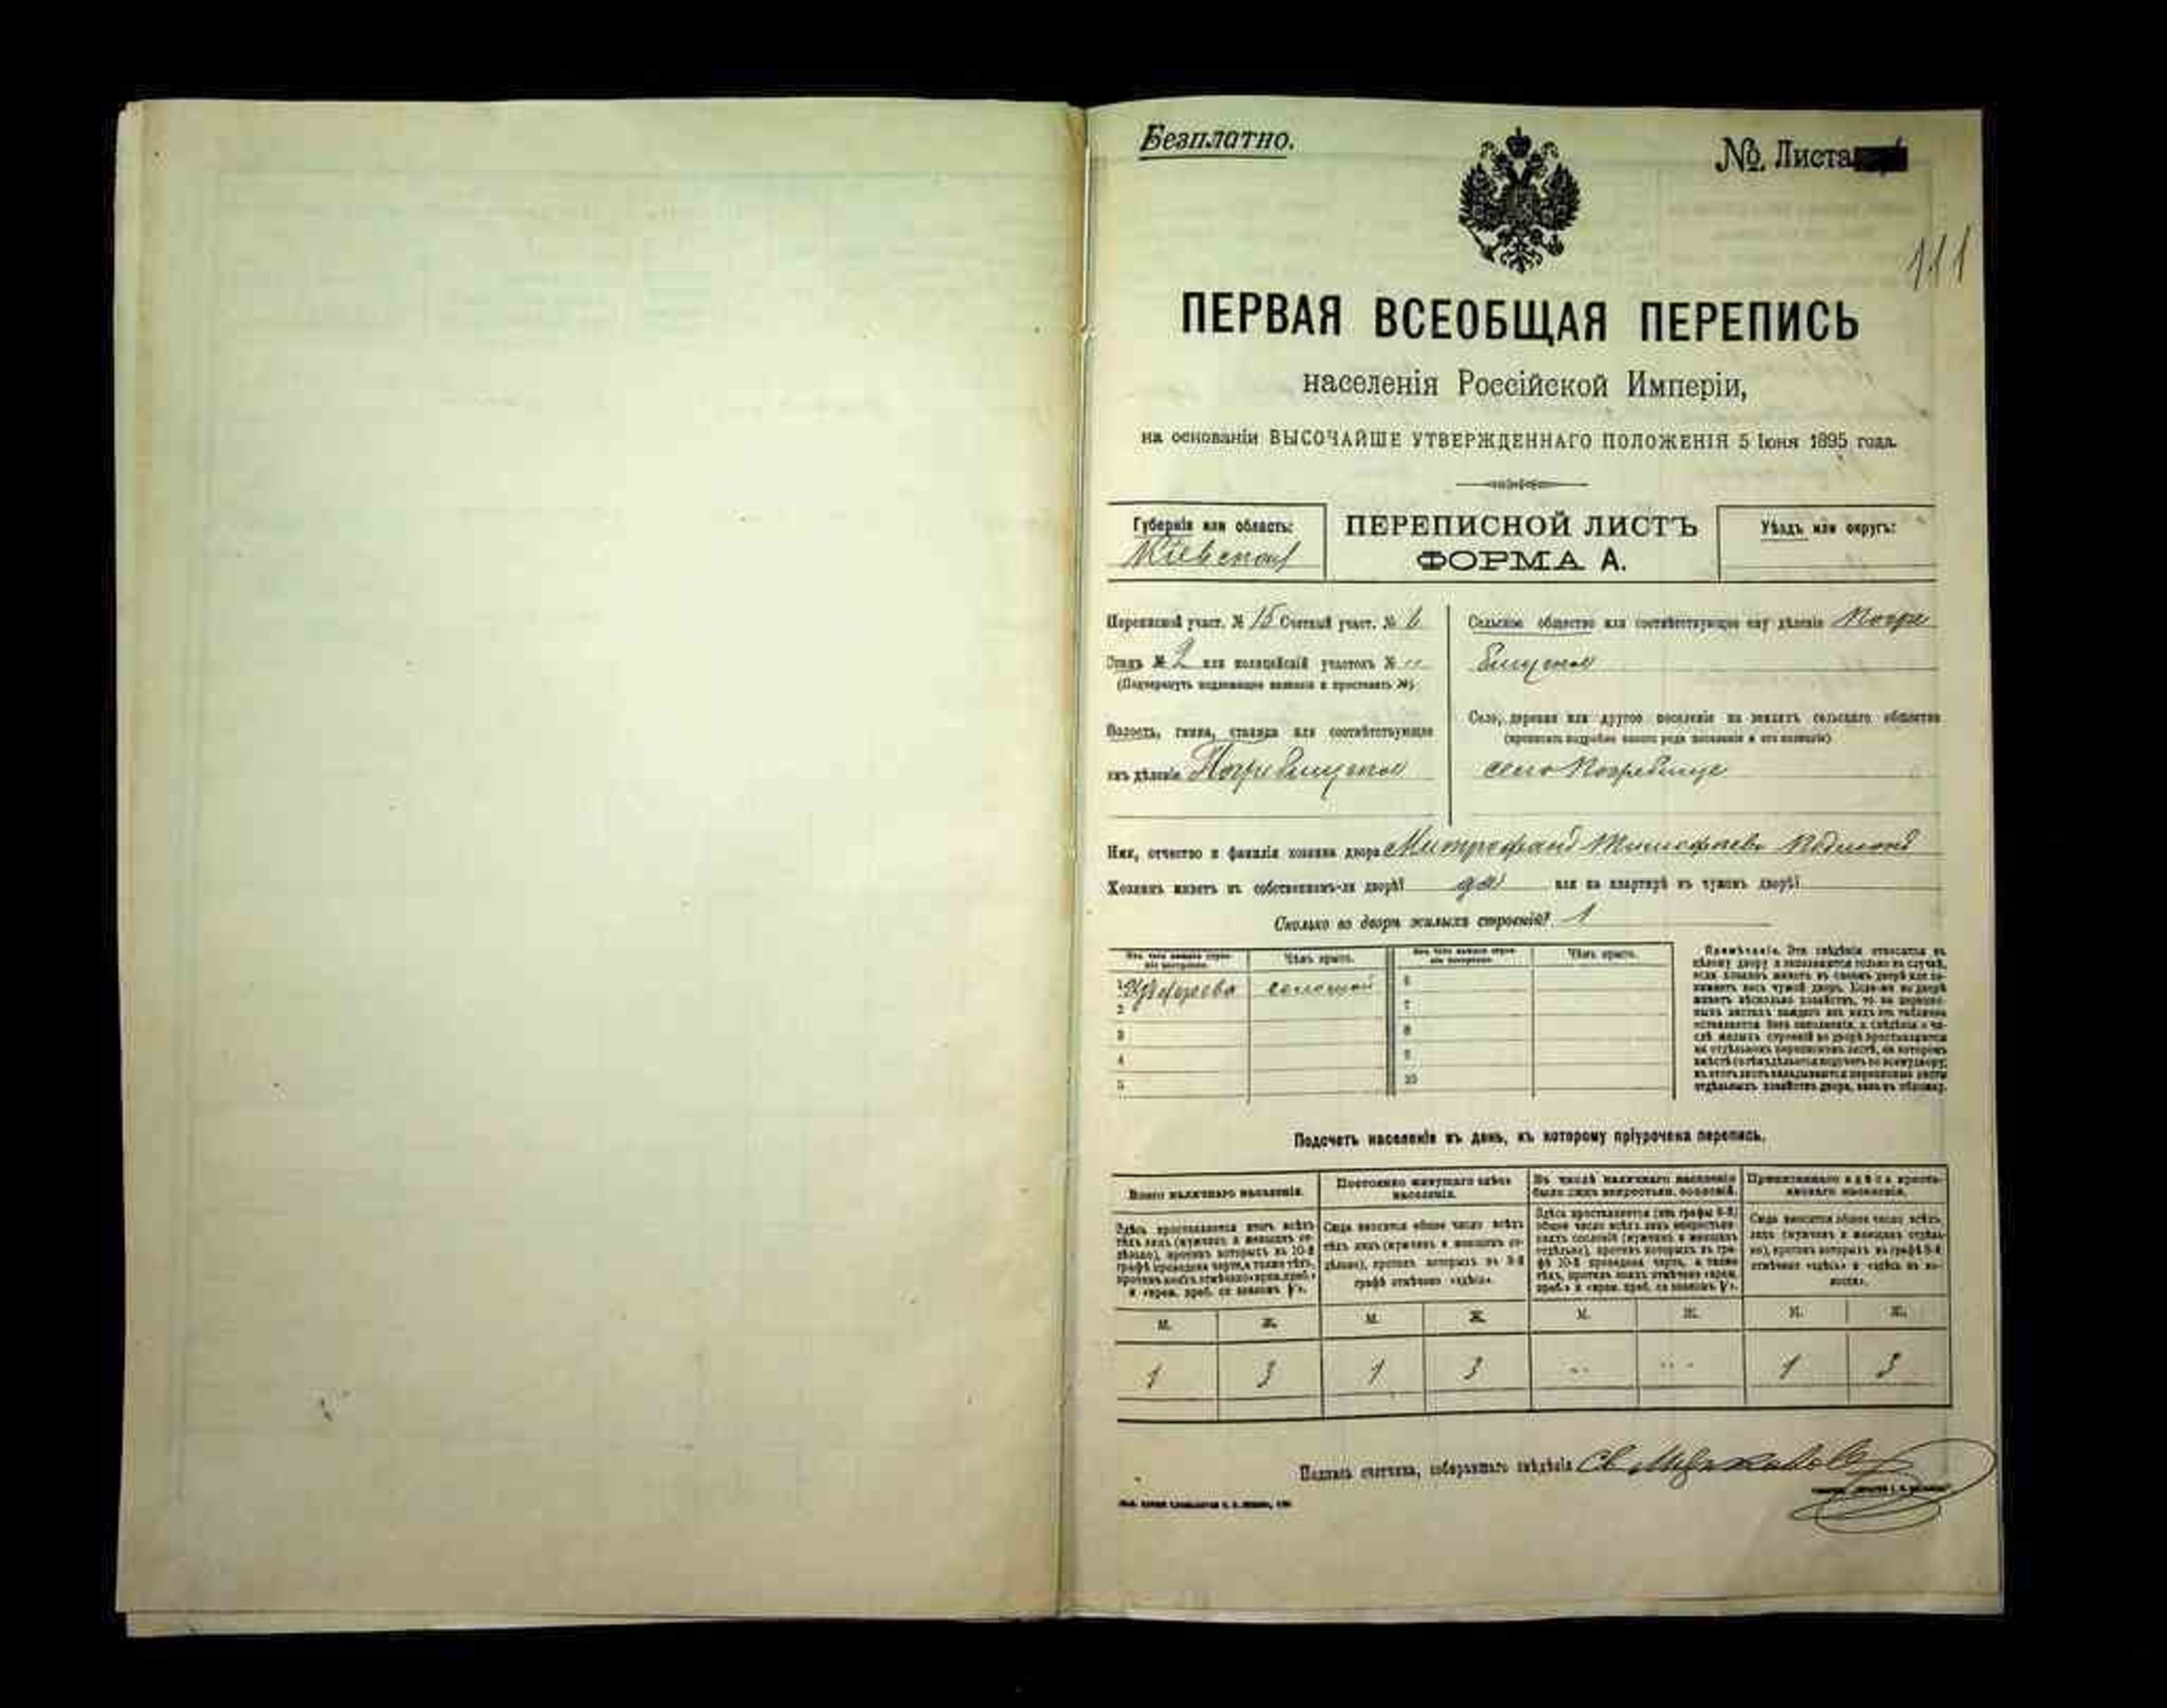 Безплатно.
№ Листа
111
ПЕРВАЯ ВСЕОБЩАЯ ПЕРЕПИСЬ
населенія Россійской Имперіи,
на основаніи ВЫСОЧАЙШЕ УТВЕРЖДЕННАГО ПОЛОЖЕНІЯ 5 Іюня 1895 года.
Губернія или область:
Кіевская
ПЕРЕПИСНОЙ ЛИСТЪ
ФОРМА А.
Уѣздъ или округъ:
Переписной участ. № 15 Счетный участ. № 6
Станъ № 2 или полицейскій участокъ №
(Подчеркнуть надлежащее названіе и проставить №)
Волость, гмина, станица или соотвѣтствующее
имъ дѣленіе Погребищское
Сельское общество или соотвѣтствующее ему дѣленіе Погре
бищское
Село, деревня или другое поселеніе на земляхъ сельскаго общества
(прописать подробно какого рода поселеніе и его названіе)
село Погребище
Имя, отчество и фамилія хозяина двора Митрофанъ
Хозяинъ живетъ въ собственномъ-ли дворѣ? да или на квартирѣ въ чужомъ дворѣ?
Сколько во дворѣ жилыхъ строеній? 1
Изъ чего жилыя строенія построены.
Чѣмъ крыто.
Изъ чего жилыя строенія построены.
Чѣмъ крыто.
1 Изъ дерева соломой 6
2 7
3 8
4 9
5 10
Примѣчаніе. Эти свѣдѣнія относятся къ
цѣлому двору и заполняются только въ случаѣ,
если хозяинъ живетъ въ своемъ дворѣ или за-
нимаетъ весь чужой дворъ. Если-же во дворѣ
живетъ нѣсколько хозяйствъ, то на перепис-
ныхъ листахъ каждаго изъ нихъ эта табличка
оставляется безъ заполненія, а свѣдѣнія о чи-
слѣ жилыхъ строеній во дворѣ проставляются
на отдѣльномъ переписномъ листѣ, на которомъ
въ этотъ листъ вкладываются переписные листы
отдѣльныхъ хозяйствъ двора, какъ въ обложку.
Подсчетъ населенія въ день, къ которому пріурочена перепись.
Всего наличнаго населенія.
Здѣсь проставляется итогъ всѣхъ
тѣхъ лицъ (мужчинъ и женщинъ от-
дѣльно), противъ которыхъ въ 10-й
графѣ проведена черта, а также тѣхъ,
противъ коихъ отмѣчено «врем. преб.»
и «врем. преб. со знакомъ V».
Постоянно живущаго здѣсь
населенія.
Сюда вносится общее число всѣхъ
тѣхъ лицъ (мужчинъ и женщинъ от-
дѣльно), противъ которыхъ въ 9-й
графѣ отмѣчено «здѣсь».
Въ числѣ наличнаго населенія
было лицъ некрестьян. сословій.
Здѣсь проставляется (изъ графы 6-й)
общее число всѣхъ лицъ некрестьян-
скихъ сословій (мужчинъ и женщинъ
отдѣльно), противъ которыхъ въ гра-
фѣ 10-й проведена черта, а также
тѣхъ, противъ коихъ отмѣчено «врем.
преб.» и «врем. преб. со знакомъ V».
Приписаннаго здѣсь кресть-
янскаго населенія.
Сюда вносится общее число всѣхъ
лицъ (мужчинъ и женщинъ отдѣль-
но), противъ которыхъ въ графѣ 8-й
отмѣчено «здѣсь» и «здѣсь въ во-
лости».
М. Ж. М. Ж. М. Ж. М. Ж.
1 3 1 3 1 3
Подпись счетчика, собиравшаго свѣдѣнія